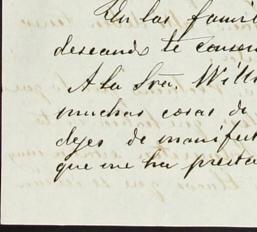 En las famili
deseando te conser
A la Sra. Will
muchas cosas de
dejes de manifest
que me ha presta